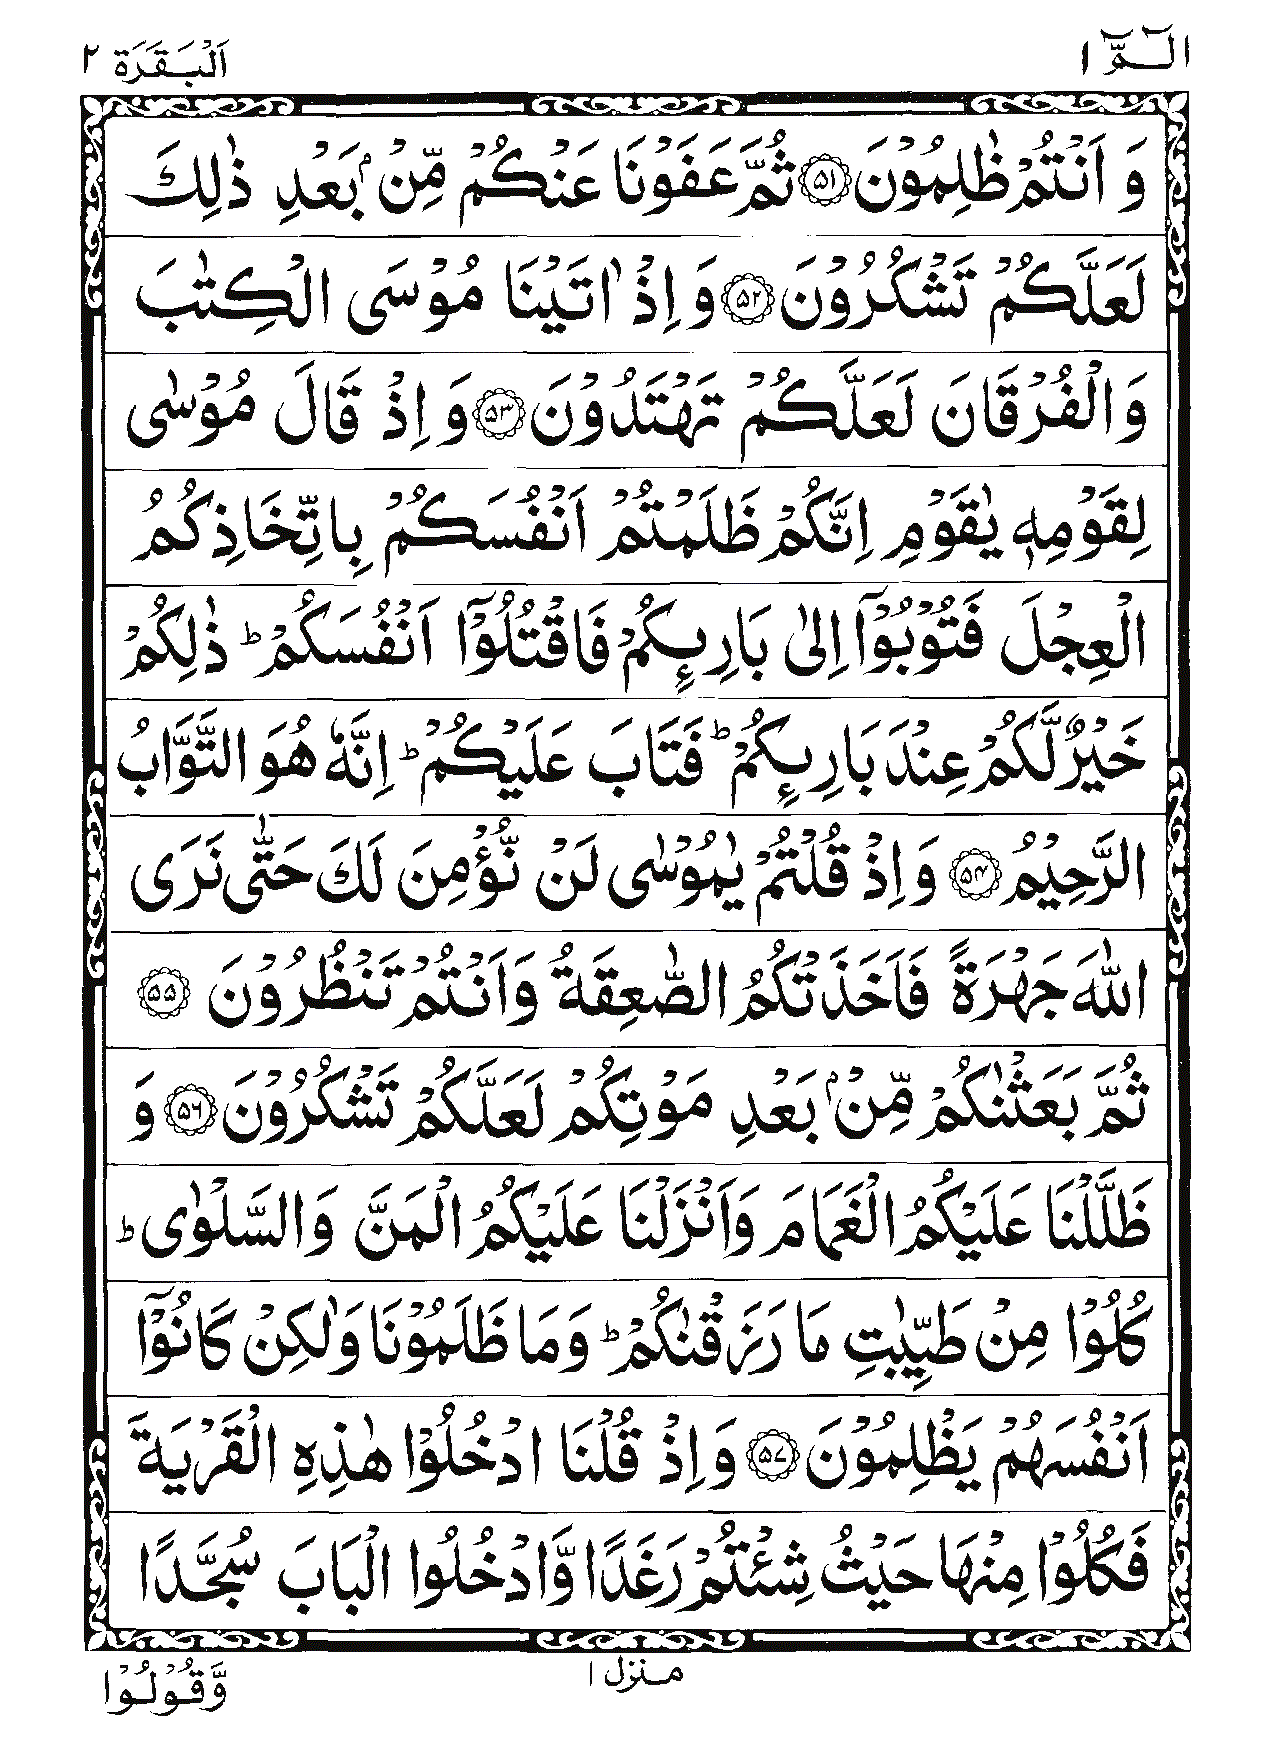 الٓمّٓ ١
اَلْبَقَرَة ٢
وَ اَنْتُمْ ظٰلِمُوْنَ ۝۵۱ ثُمَّ عَفَوْنَا عَنْكُمْ مِّنْۢ بَعْدِ ذٰلِكَ
لَعَلَّكُمْ تَشْكُرُوْنَ ۝۵۲ وَ اِذْ اٰتَيْنَا مُوْسَى الْكِتٰبَ
وَالْفُرْقَانَ لَعَلَّكُمْ تَهْتَدُوْنَ ۝۵۳ وَ اِذْ قَالَ مُوْسٰى
لِقَوْمِهٖ يٰقَوْمِ اِنَّكُمْ ظَلَمْتُمْ اَنْفُسَكُمْ بِاتِّخَاذِكُمُ
الْعِجْلَ فَتُوْبُوْٓا اِلٰى بَارِىِٕكُمْ فَاقْتُلُوْٓا اَنْفُسَكُمْ ؕ ذٰلِكُمْ
خَيْرٌ لَّكُمْ عِنْدَ بَارِىِٕكُمْ ؕ فَتَابَ عَلَيْكُمْ ؕ اِنَّهٗ هُوَ التَّوَّابُ
الرَّحِيْمُ ۝۵۴ وَ اِذْ قُلْتُمْ يٰمُوْسٰى لَنْ نُّؤْمِنَ لَكَ حَتّٰى نَرَى
اللّٰهَ جَهْرَةً فَاَخَذَتْكُمُ الصّٰعِقَةُ وَاَنْتُمْ تَنْظُرُوْنَ ۝۵۵
ثُمَّ بَعَثْنٰكُمْ مِّنْۢ بَعْدِ مَوْتِكُمْ لَعَلَّكُمْ تَشْكُرُوْنَ ۝۵۶ وَ
ظَلَّلْنَا عَلَيْكُمُ الْغَمَامَ وَاَنْزَلْنَا عَلَيْكُمُ الْمَنَّ وَالسَّلْوٰى ؕ
كُلُوْا مِنْ طَيِّبٰتِ مَا رَزَقْنٰكُمْ ؕ وَمَا ظَلَمُوْنَا وَلٰكِنْ كَانُوْٓا
اَنْفُسَهُمْ يَظْلِمُوْنَ ۝۵۷ وَ اِذْ قُلْنَا ادْخُلُوْا هٰذِهِ الْقَرْيَةَ
فَكُلُوْا مِنْهَا حَيْثُ شِئْتُمْ رَغَدًا وَّادْخُلُوا الْبَابَ سُجَّدًا
منزل ١
وَّقُوْلُوْا